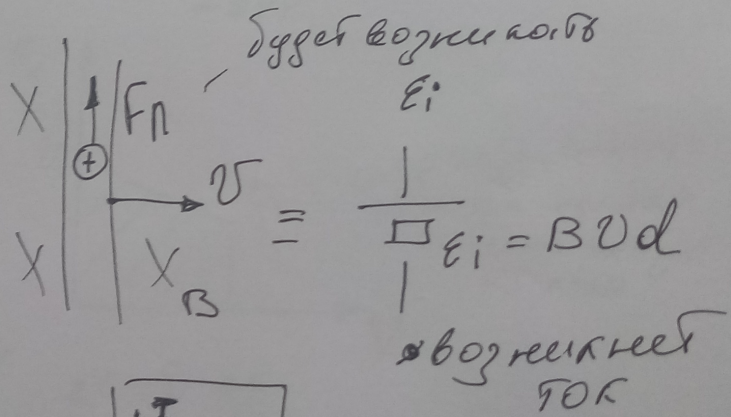 будет возникать
εi
X Fл
+
υ
X X B
= εi = Bυd
возникнет
ток